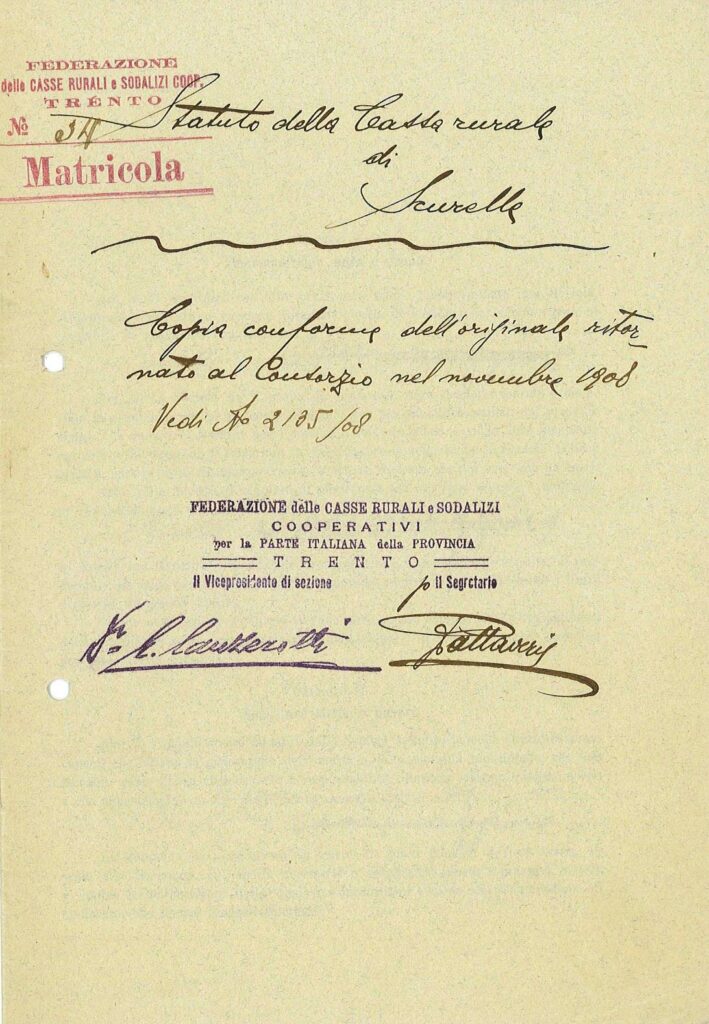 FEDERAZIONE
delle CASSE RURALI e SODALIZI COOP.
TRENTO
No
Matricola
Statuto della Cassa rurale
di
Scurelle
Copia conforme dell'originale ritor-
nato al Consorzio nel novembre 1908
Vedi No 2135/08
FEDERAZIONE delle CASSE RURALI e SODALIZI
COOPERATIVI
per la PARTE ITALIANA della PROVINCIA
TRENTO
Il Vicepresidente di sezione p Il Segretario
Dr. Lanzerotti